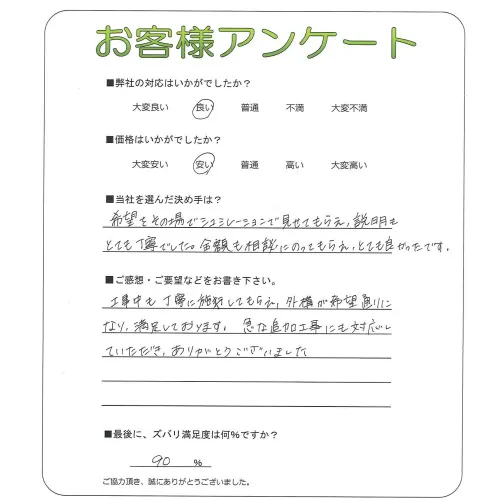 お客様アンケート
■弊社の対応はいかがでしたか？
大変良い 良い 普通 不満 大変不満
■価格はいかがでしたか？
大変安い 安い 普通 高い 大変高い
■当社を選んだ決め手は？
希望をその場でシュミレーションで見せてもらえ、説明も
とても丁寧でした。金額も相談にのってもらえ、とても良かったです。
■ご感想・ご要望などをお書き下さい。
工事中も丁寧に施対してもらえ、外構が希望通りに
なり、満足しております。急な追加工事にも対応し
ていただき、ありがとうございました
■最後に、ズバリ満足度は何%ですか？
90 %
ご協力頂き、誠にありがとうございました。